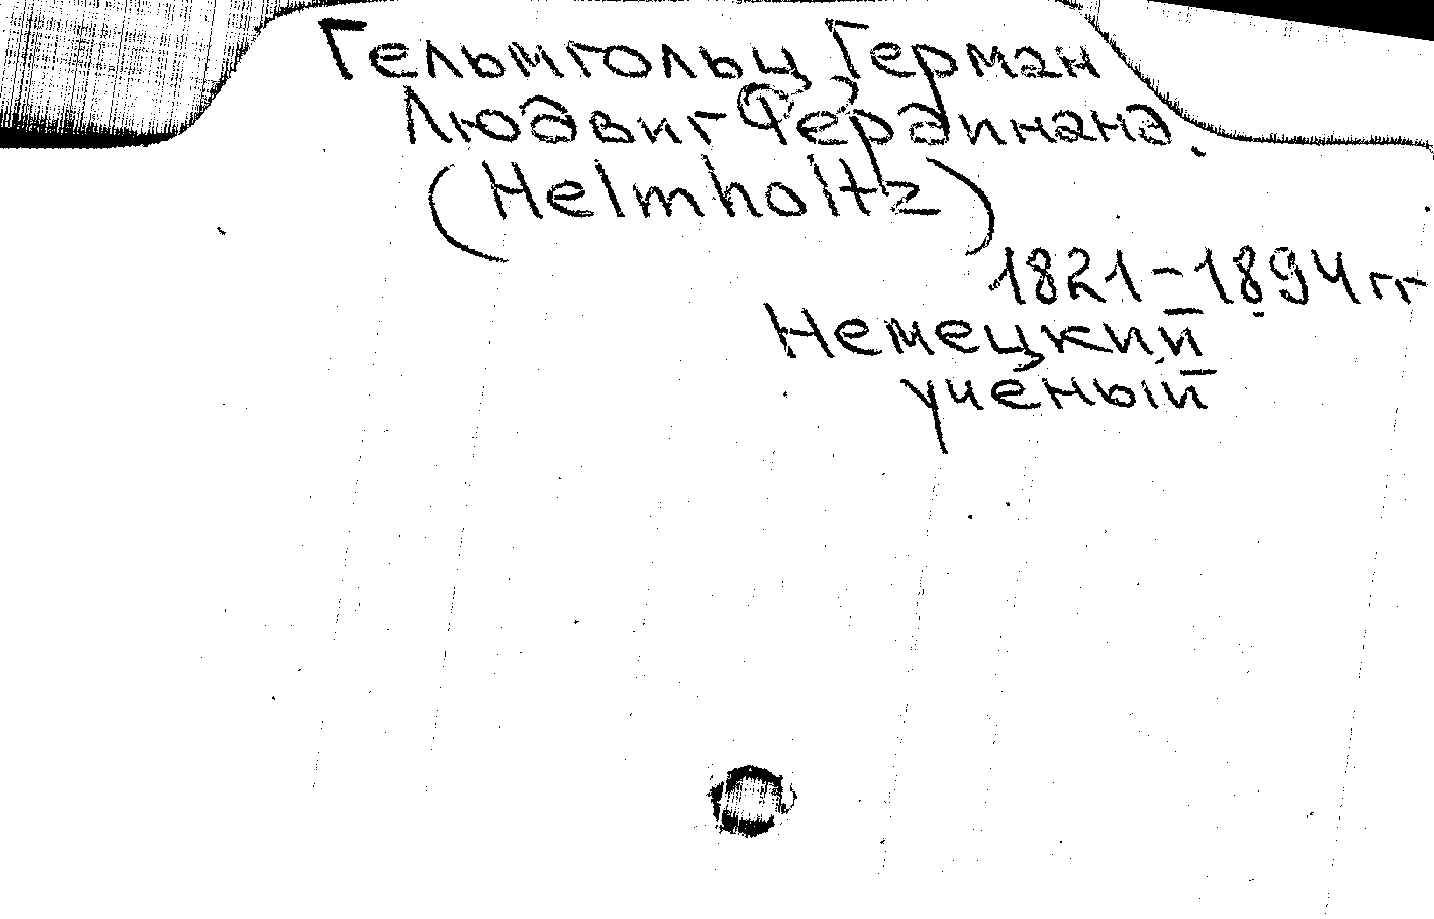 Гельмгольц Герман
Людвиг Фердинанд.
(Helmholtz)
1821-1894 гг
Немецкий
ученый